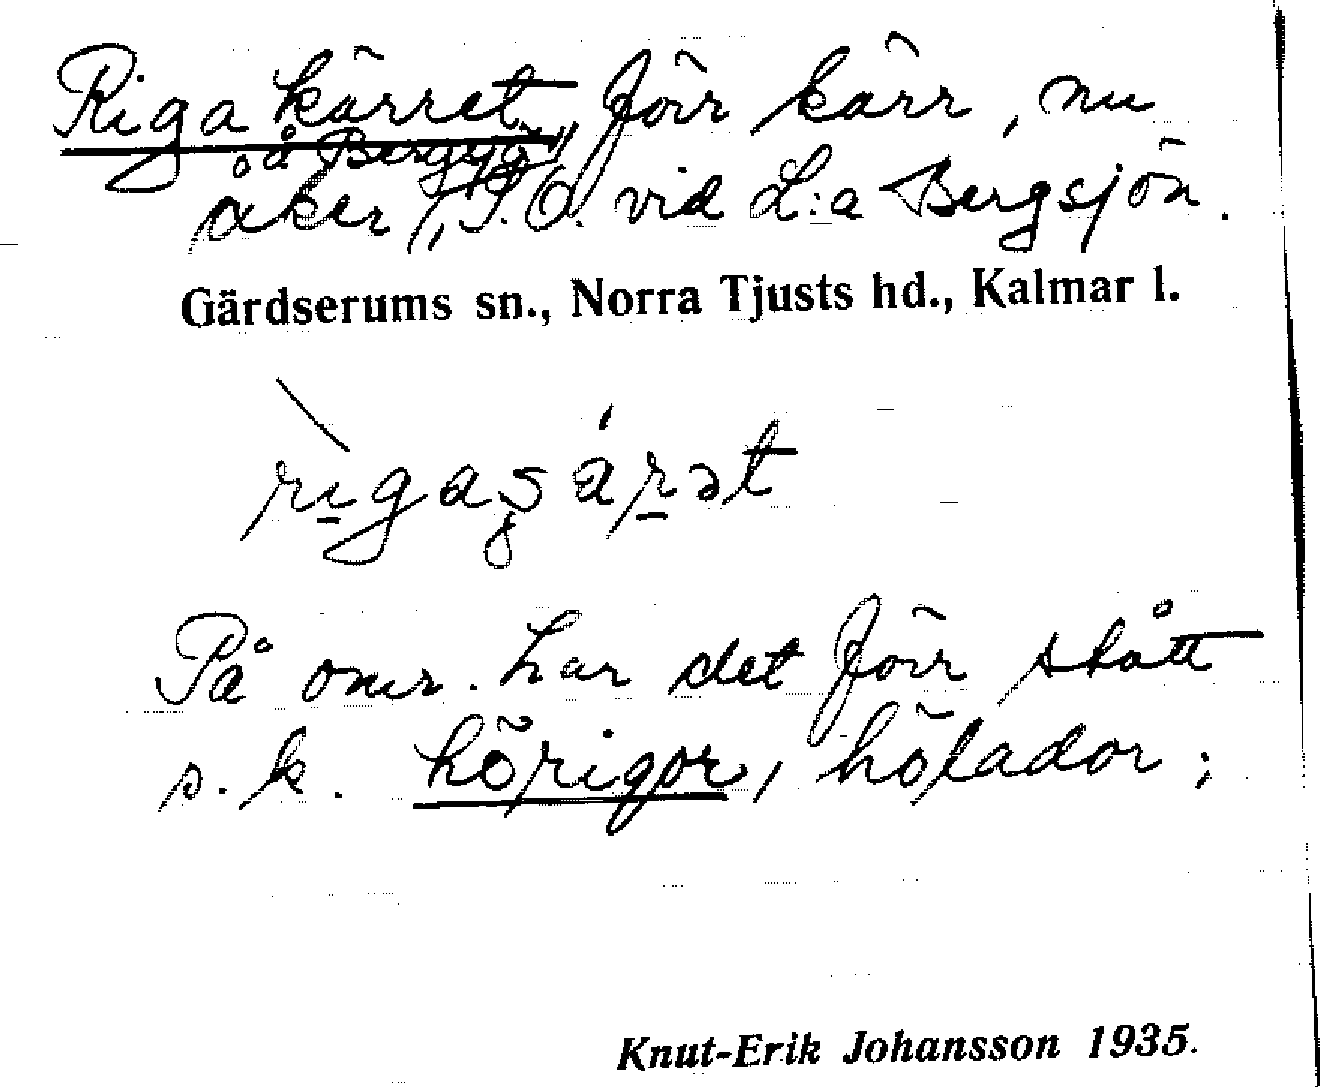 Rigakärret, förr kärr, nu
å Bergsjö
åker, S.O. vid L:a Bergsjön.
Gärdserums sn., Norra Tjusts hd., Kalmar l.
På omr. har det förr stått
s.k. hörigor, hölador;
Knut-Erik Johansson 1935.